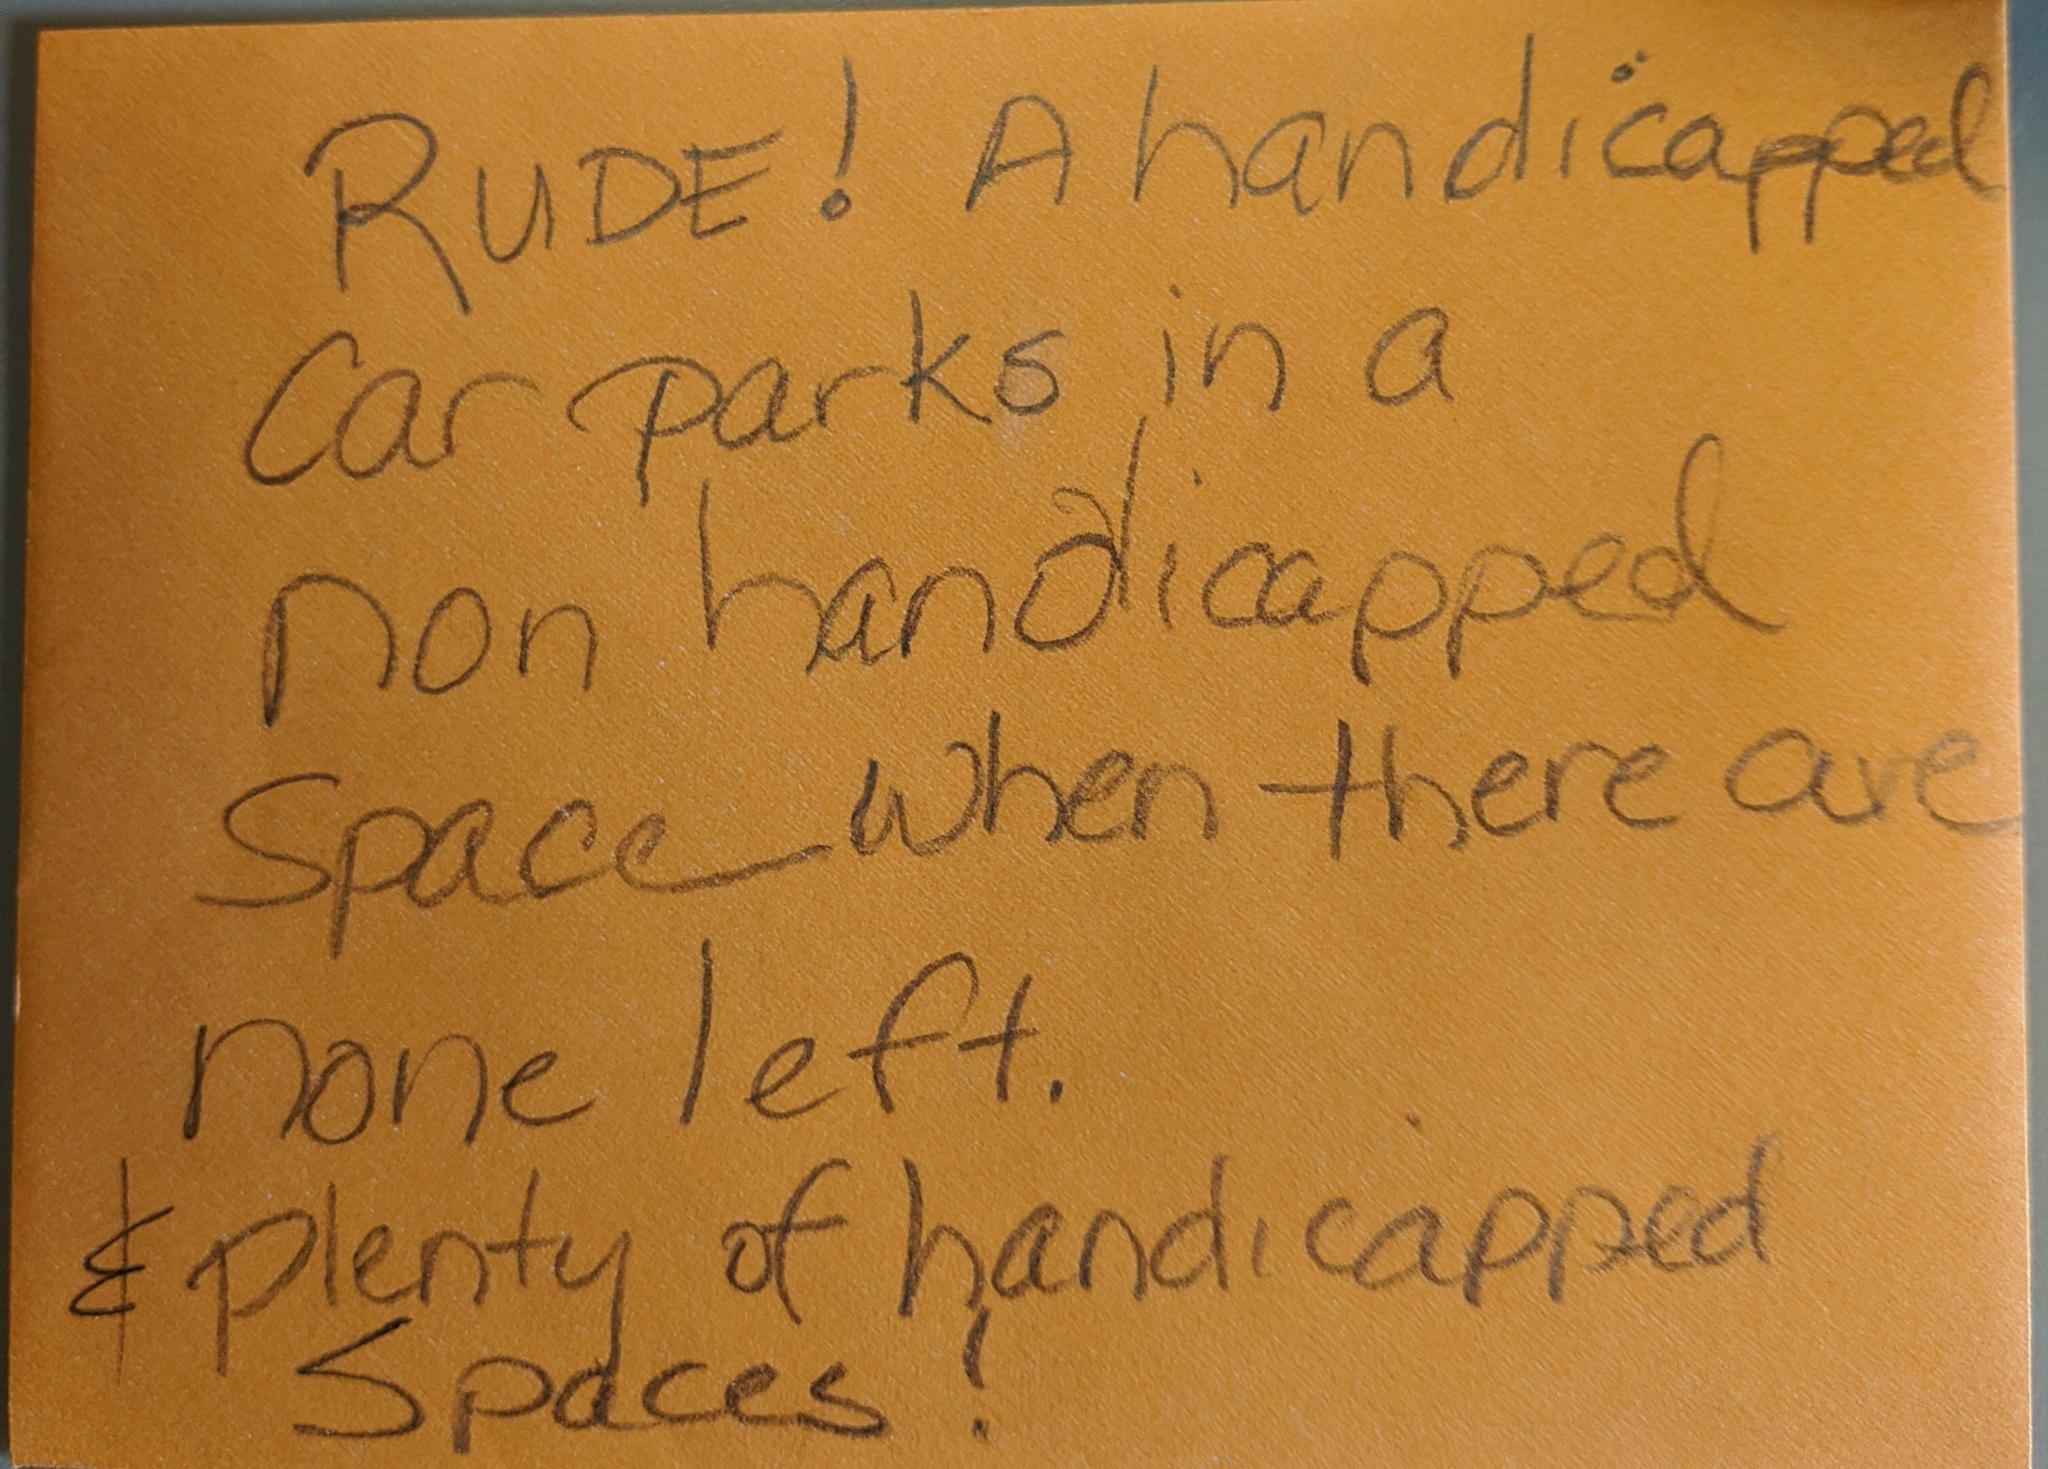 RUDE! A handicapped
Car parks in a
non handicapped
Space when there are
none left.
& plenty of handicapped
Spaces!